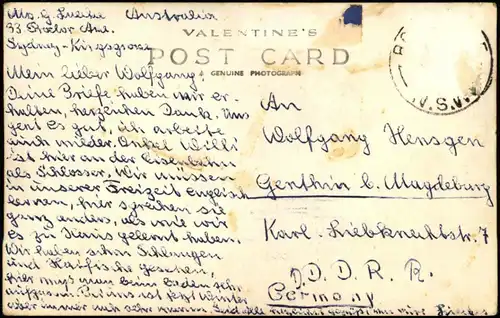 Mrs. G. Lueike Australia
33. Proctor Ave.
Sydney-Kingsgrove
VALENTINE'S
POST CARD
A GENUINE PHOTOGRAPH
Mein lieber Wolfgang,
Deine Briefe haben wir er-
halten, herzlichen Dank. Uns
geht es gut, ich arbeite
auch wieder. Onkel Willi
ist hier an der Eisenbahn
als Schlosser. Wir müssen
in unserer Freizeit englisch
lernen, hier sprechen sie
ganz anders, als wie wir
es zu Haus gelernt haben.
Wir haben schon Schlangen
und Haifische gesehen,
hier muß man beim baden sehr
aufpassen. Bei uns ist jetzt Winter
aber immer noch sehr warm. Seid alle herzlichst gegrüßt von
An
Wolfgang Hensgen
Genthin b. Magdeburg
Karl-Liebknechtstr. 7
D. D. D. R. R.
Germany
N.S.W.